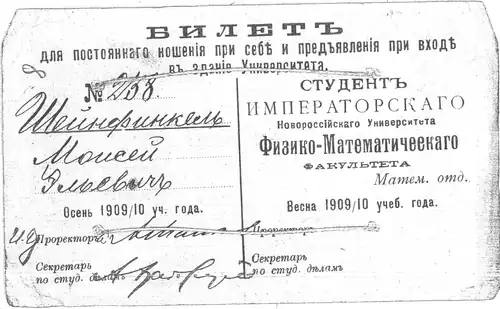 БИЛЕТЪ
для постояннаго ношенія при себѣ и предъявленія при входѣ
въ зданія Университета.
№ 238
Шейнфинкель
Моисей
Эльевичъ
Осень 1909/10 уч. года.
И. д. Проректоръ
Секретарь
по студ. дѣламъ
СТУДЕНТЪ
ИМПЕРАТОРСКАГО
Новороссійскаго Университета
Физико-Математическаго
ФАКУЛЬТЕТА
Матем. отд.
Весна 1909/10 учеб. года.
Проректоръ
Секретарь
по студ. дѣламъ